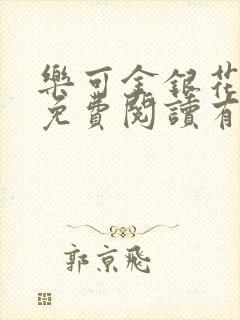 樂可金銀花
免費閱讀有
郭京飛